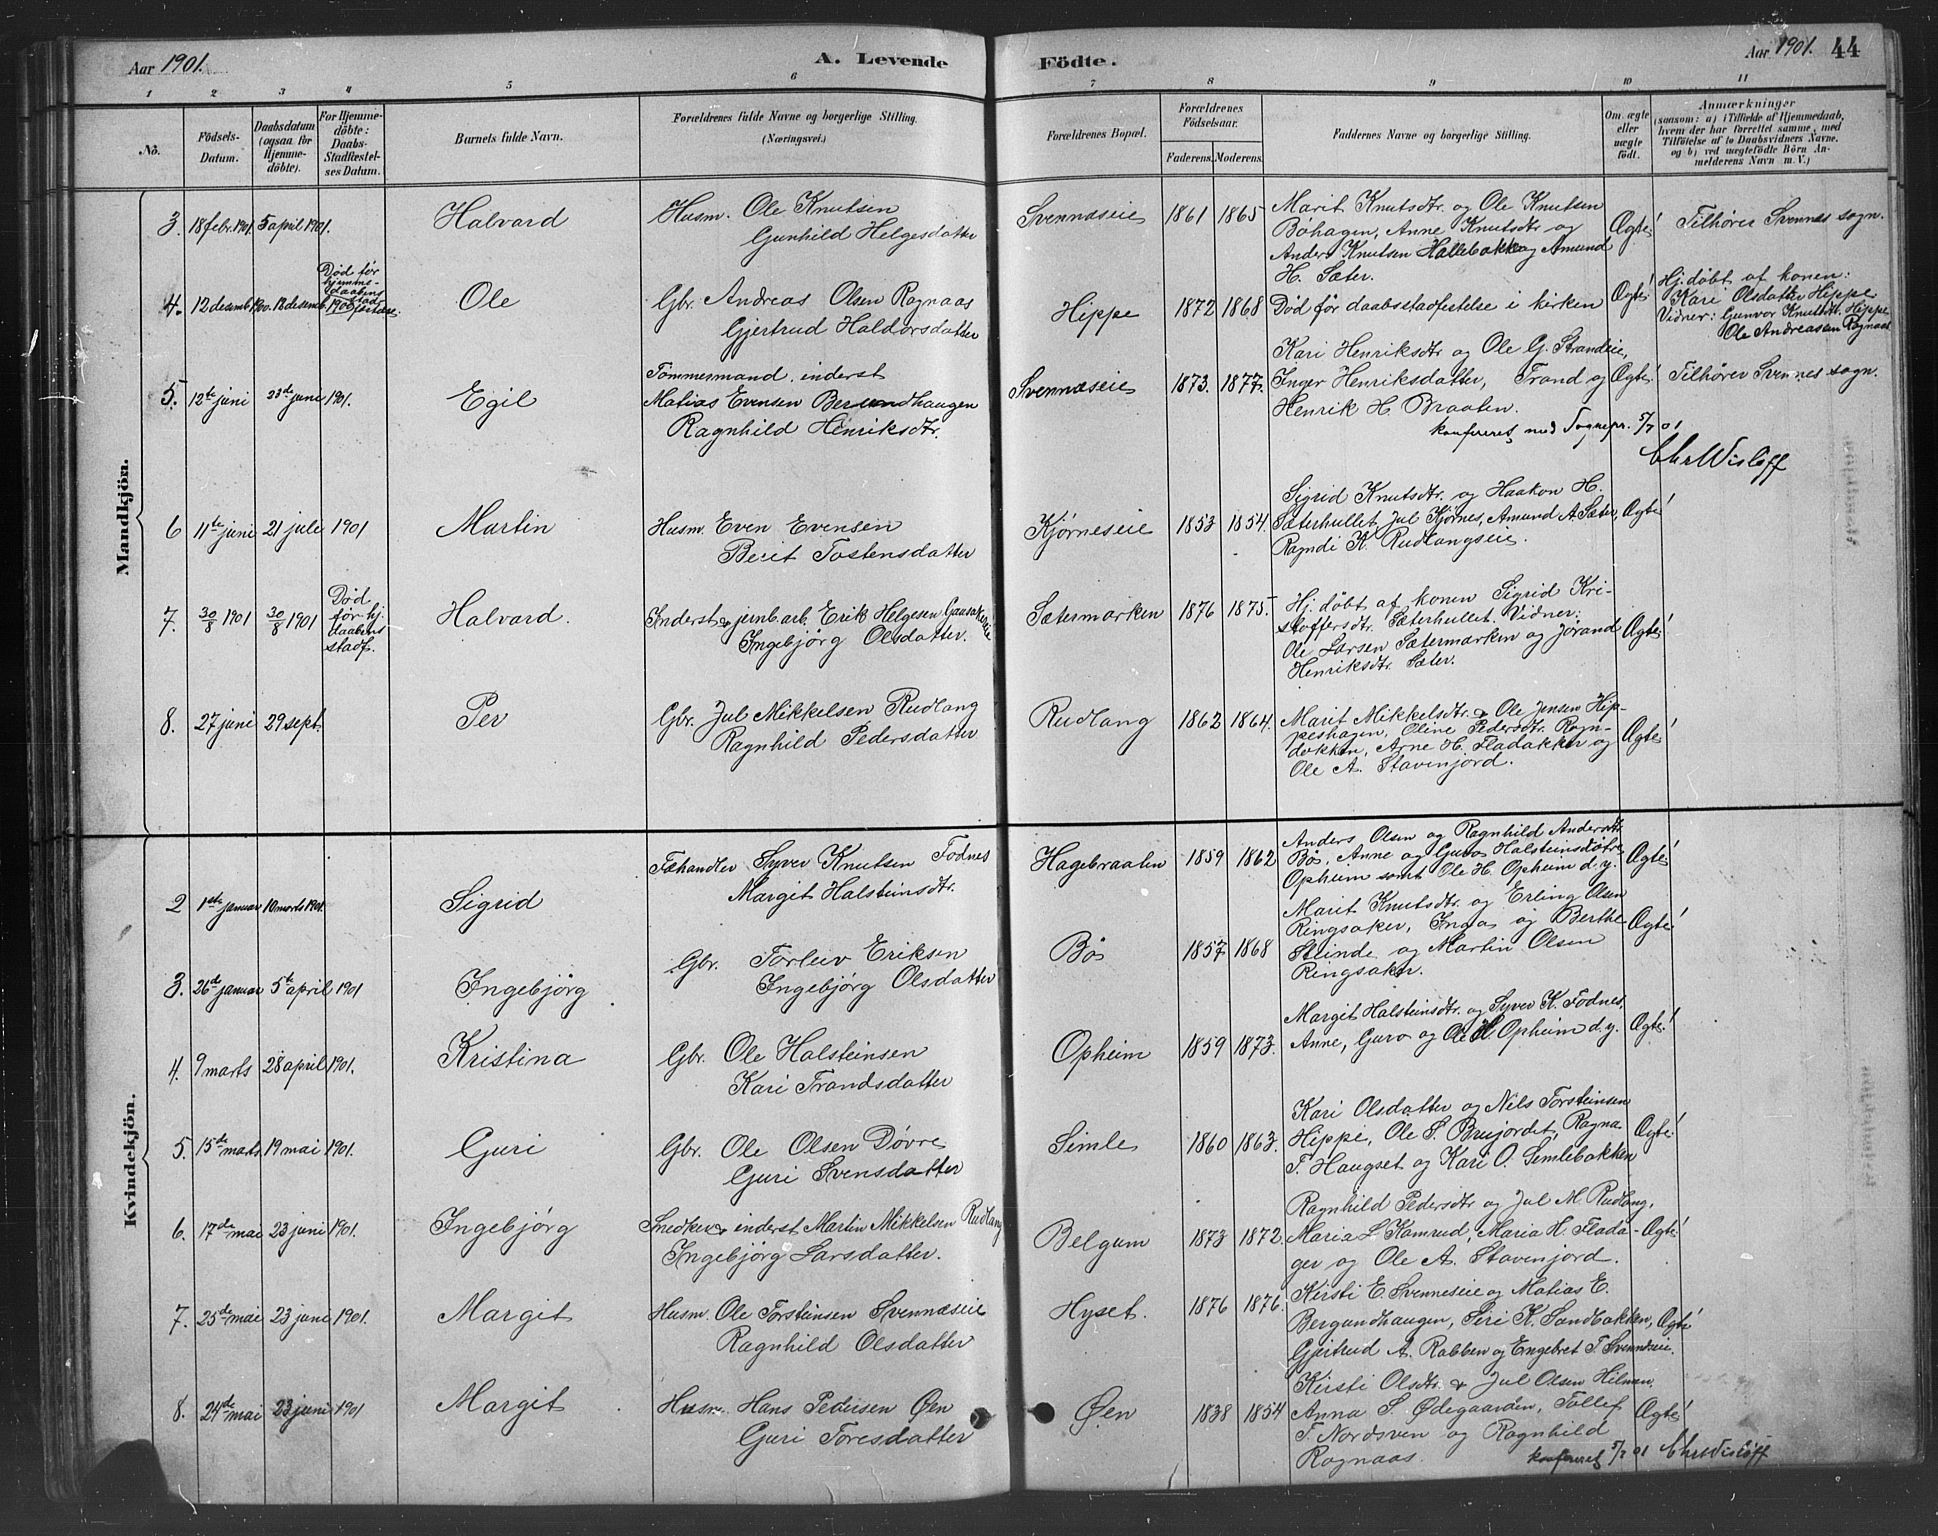 Aar 1901.
A. Levende
Födte.
Aar 1901. 44
1 2 3 4 5 6 7 8 9 10 11
No.
Födsels-
Datum.
Daabsdatum
(ogsaa for
Hjemme-
döbte).
For Hjemme-
döbte:
Daabs-
Stadfæstel-
ses Datum.
Barnets fulde Navn.
Forældrenes fulde Navne og borgerlige Stilling.
(Næringsvei.)
Forældrenes Bopæl.
Forældrenes
Födselsaar.
Faderens. Moderens.
Faddernes Navne og borgerlige Stilling.
Om ægte
eller
uægte
födt.
Anmærkninger
(saasom: a) i Tilfælde af Hjemmedaab,
hvem der har forrettet samme, med
Tilföielse af to Daabsvidners Navne,
og b) ved uægtefödte Börn An-
melderens Navn m. V.)
Mandkjön.
3. 18 febr. 1901 5 april 1901.
Halvard
Husm. Ole Knutsen
Gunhild Helgesdatter
Svennæseie
1861 1865
Marit Knutsdtr. og Ole Knutsen
Böhagen, Anne Knutsdtr og
Anders Knutsen Hallebakke og Amund
H. Sæter.
Ægte!
Tilhører Svennæs sogn.
4. 12 desemb. 1900. 13 desemb. 1900
Död før
hjemme-
daabens
stad-
fæstelse.
Ole
Gbr. Andreas Olsen Rognaas
Gjertrud Haldorsdatter
Hippe
1872 1868
Död før daabsstadfestelse i kirken
Ægte!
Hj. døbt af konen:
Kari Olsdatter Hippe
Vidner: Gunvor Knutsdtr. Hippe
Ole Andreassen Rognaas
5. 12te juni 23de juni 1901.
Egil
Tömmermand, inderst
Matias Evensen Bergundhaugen
Ragnhild Henriksdtr.
Svennæseie
1873. 1877.
Kari Henriksdtr og Ole G. Strandeie,
Inger Henriksdatter, Trand og
Henrik H. Braaten.
Ægte!
Tilhører Svennes sogn.
konfereret med Sognepr. 5/7 01
Chr Wisløff
6 11te juni 21 jule 1901
Martin
Husm. Even Evensen
Berit Tostensdatter
Kjørneseie
1853 1854
Sigrid Knutsdtr. og Haakon H.
Sæterhullet, Jul Kjørnes, Amund A. Sæter,
Ragndi K. Rudlangseie.
Ægte!
7. 30/8 1901 30/8 1901
Död
før hj.
daabens
stadf.
Halvard.
Inderst og jernb.arb. Erik Helgesen Gausakereie
Ingebjörg Olsdatter.
Sætermarken
1876 1875.
Hj. døbt af konen Sigrid Kri-
stoffersdtr. Sæterhullet. Vidner:
Ole Larsen Sætermarken og Jörand
Henriksdtr. Sæter.
Ægte!
8. 27 juni 29 sept.
Per
Gbr. Jul Mikkelsen Rudlang
Ragnhild Pedersdatter
Rudlang
1862 1864.
Marit Mikkelsdtr. & Ole Jensen Hip-
peshagen, Oline Pedersdtr. Rogn-
dokken, Arne H. Fladakker og
Ole A. Stavenjord.
Ægte!
Kvindekjön.
2 1ste januar 10 marts 1901.
Sigrid
Fæhandler Syver Knutsen Fodnes
Margit Halsteinsdtr.
Hagebraaten
1859 1862
Anders Olsen og Ragnhild Andersdtr.
Bö, Anne og Guro Halsteinsdøtre
Opheim samt Ole H. Opheim d.y.
Ægte!
3. 26de januar 5te april 1901
Ingebjörg
Gbr. Torleiv Eriksen
Ingebjörg Olsdatter
Bö
1857 1868
Marit Knutsdtr. og Erling Olsen
Ringsaker, Inga og Berthe
Strinde og Martin Olsen
Ringsaker.
Ægte!
4. 9 marts 28 april 1901.
Kristina
Gbr. Ole Halsteinsen
Kari Trandsdatter
Opheim
1859 1873.
Margit Halsteinsdtr. og Syver K. Fodnes,
Anne, Guro og Ole H. Opheim d.y.
Ægte!
5. 15de mats 19 mai 1901.
Guri
Gbr. Ole Olsen Dövre
Guri Svensdatter
Simle
1860 1863.
Kari Olsdatter og Nils Torsteinsen
Hippe, Ole S. Brujordet, Ragna
T. Haugset og Kari O. Simlebakken
Ægte!
6. 17de mai 23 juni 1901.
Ingebjörg
Snedker & inderst Martin Mikkelsen Rudlang
Ingebjörg Larsdatter.
Belgum
1873 1872.
Ragnhild Pedersdtr og Jul M. Rudlang,
Maria L Kamrud, Maria H. Flada-
ger og Ole A. Stavenjord.
Ægte!
7. 25de mai 23 juni 1901.
Margit
Husm. Ole Torsteinsen Svennæseie
Ragnhild Olsdatter
Hyset.
1876 1876.
Kirsti E. Svenneseie og Matias E.
Bergundhaugen, Siri K. Sandbakken,
Gjertrud A. Rabben og Engebret T. Svennæseie.
Ægte!
8. 24de mai 23 juni 1901
Margit
Husm. Hans Pedersen Øen
Guri Toresdatter
Øen
1838 1854
Kirsti Olsdtr. & Jul Olsen Hilmen.
Anna S. Ødegaarden, Tollef
T. Nordsven og Ragnhild
Rognaas.
Ægte!
konfereret 5/7 01 Chr Wisløff